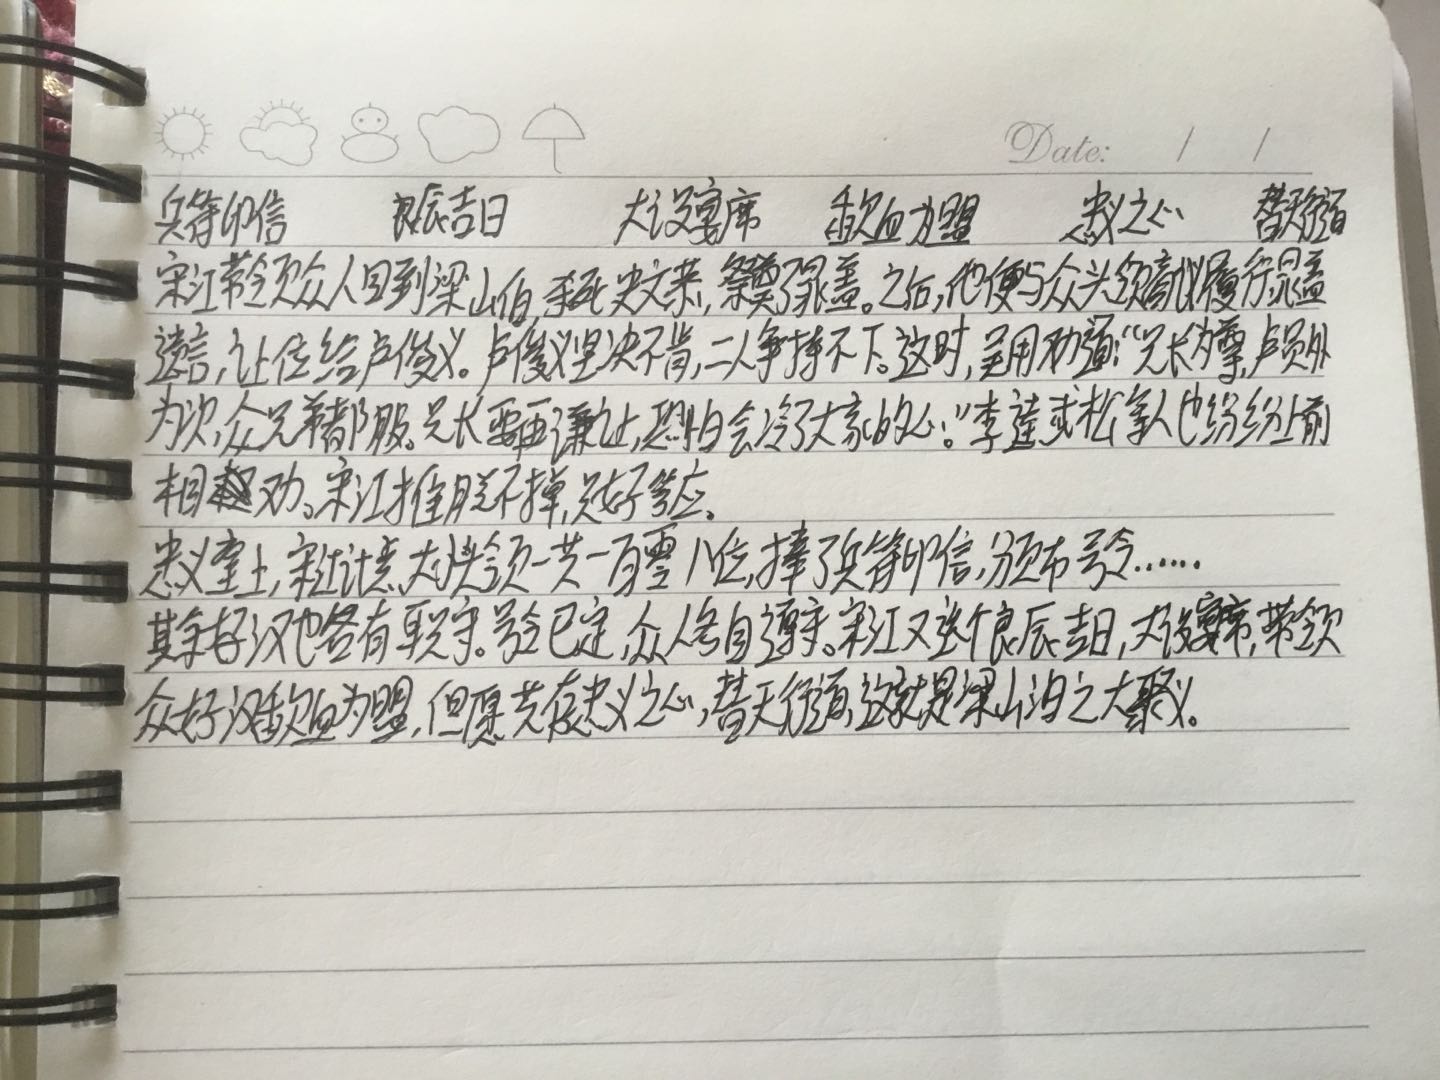 Date: / /
兵符印信 良辰吉日 大设宴席 歃血为盟 忠义之心 替天行道
宋江带领众人回到梁山伯,杀死史文恭,祭奠了晁盖。之后,他便与众头领商议履行晁盖
遗言,让位给卢俊义。卢俊义坚决不肯,二人争持不下。这时,吴用劝道:“兄长为尊,卢员外
为次,众兄弟都服。兄长要再谦让,恐怕会冷了大家的心。”李逵武松等人也纷纷上前
相劝。宋江推脱不掉,只好答应。
忠义堂上,宋江计点大小头领一共一百零八位,捧了兵符印信,分颁布号令……
其余好汉也各有职守。号令已定,众人各自遵守。宋江又选个良辰吉日,大设宴席,带领
众好汉歃血为盟,但愿共存忠义之心,替天行道,这就是梁山泊之大聚义。